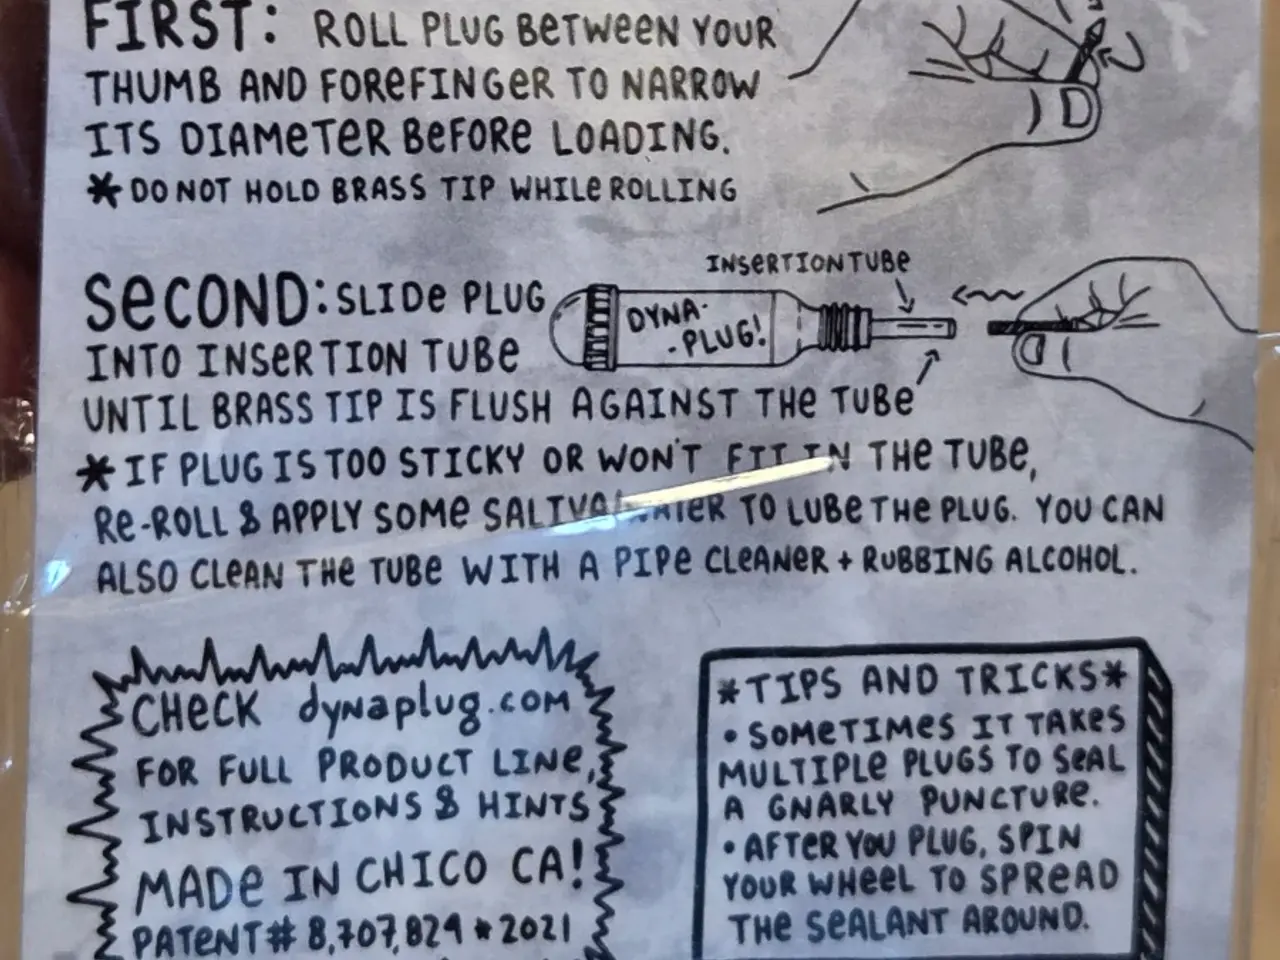 FIRST: ROLL PLUG BETWEEN YOUR
THUMB AND FOREFINGER TO NARROW
ITS DIAMETER BEFORE LOADING.
* DO NOT HOLD BRASS TIP WHILE ROLLING
INSERTION TUBE
SECOND: SLIDE PLUG
DYNA-
-PLUG!
INTO INSERTION TUBE
UNTIL BRASS TIP IS FLUSH AGAINST THE TUBE
* IF PLUG IS TOO STICKY OR WON'T FIT IN THE TUBE,
RE-ROLL & APPLY SOME SALIVA/WATER TO LUBE THE PLUG. YOU CAN
ALSO CLEAN THE TUBE WITH A PIPE CLEANER + RUBBING ALCOHOL.
CHECK dynaplug.com
FOR FULL PRODUCT LINE,
INSTRUCTIONS & HINTS
MADE IN CHICO CA!
PATENT# 8,707,829 * 2021
*TIPS AND TRICKS*
• SOMETIMES IT TAKES
MULTIPLE PLUGS TO SEAL
A GNARLY PUNCTURE.
• AFTER YOU PLUG, SPIN
YOUR WHEEL TO SPREAD
THE SEALANT AROUND.